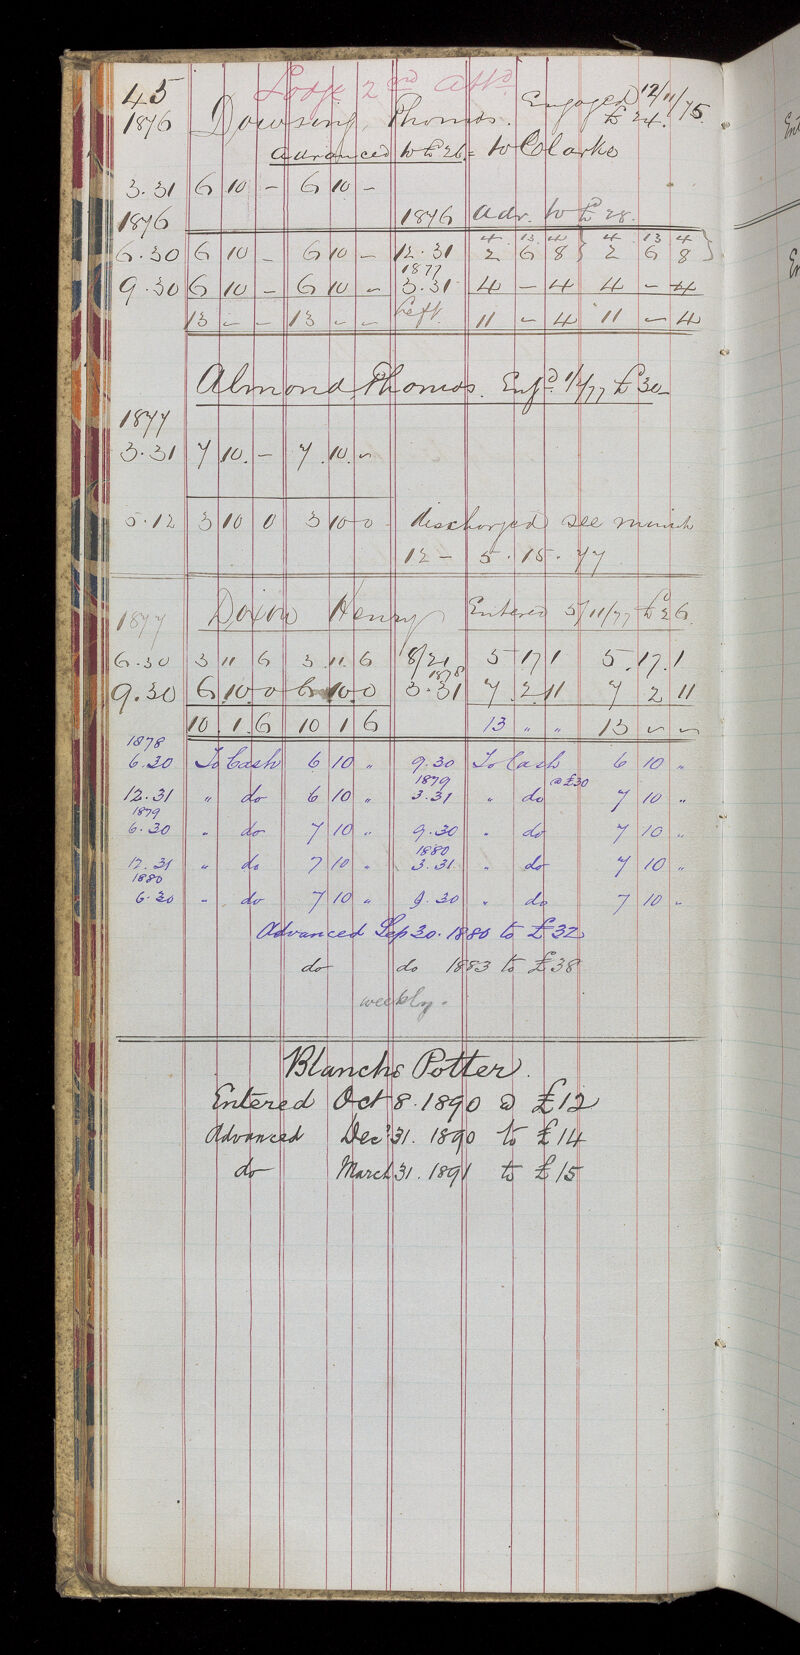 45 Lodge 2nd Attd
1876 Dowsing, Thomas. Engaged 12/11/75. £24.
Advanced to £26 = to Clarke
3.31 6 10 - 6 10 -
1876 1876 Adv. to £28.
4 13 4 4 13 4
6.30 6 10 - 6 10 - 12.31 2 6 8 } 2 6 8 }
1877
9.30 6 10 - 6 10 - 3.31 4 - 4 4 - 4
13 - - 13 - - Left 11 - 4 11 - 4
Almond, Thomas. Engd 1/1/77 £30-
1877
3.31 7 10. - 7. 10. -
5.12 3 10 0 3 10 0 discharged see minute
12 - 5.15.77
1877 Dixon Henry Entered 5/11/77 £26.
6.30 3 11 6 3.11.6 8/21 5 17 1 5.17.1
1878
9.30 6.10.0 6 10.0 3.31 7.2.11 7 2 11
10.1.6 10 1 6 13 " " 13 - -
1878
6.30 To Cash 6 10 " 9.30 To Cash 6 10 "
1879 @ £30
12.31 " do 6 10 " 3.31 " do 7 10 "
1879
6.30 " do 7 10 " 9.30 " do 7 10 "
1880
12.31 " do 7 10 " 3.31 " do 7 10 "
1880
6.30 " do 7 10 " 9.30 " do 7 10 "
Advanced Sep 30. 1880 to £32
do do 1883 to £38
weekly.
Blanche Potter.
Entered Oct 8. 1890 @ £12
Advanced Decr 31. 1890 to £14
do March 31. 1891 to £15